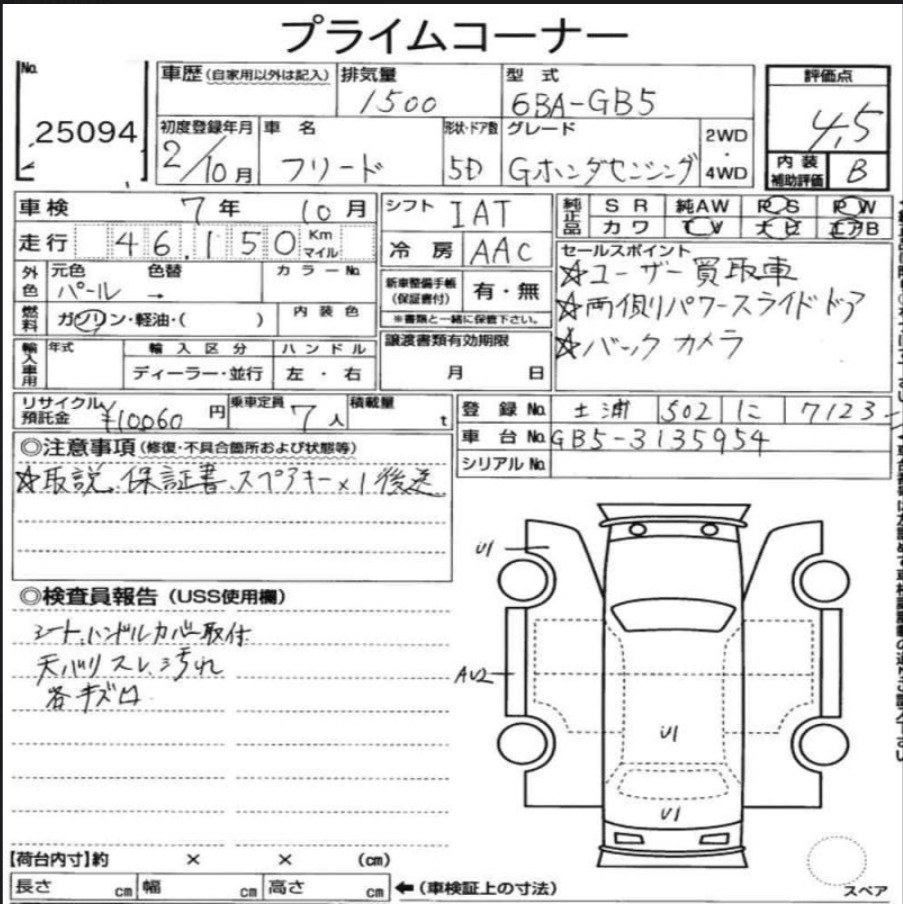 プライムコーナー
No. 25094
車歴(自家用以外は記入)
排気量 1500
型式 6BA-GB5
評価点 4.5
初度登録年月 2/10月
車名 フリード
形状・ドア数 5D
グレード Gホンダセンシング
2WD・4WD
内装補助評価 B
車検 7年 10月
走行 46,150 Km マイル
シフト IAT
冷房 AAC
純正品 SR 純AW PS PW
カワ TV ナビ エアB
外色 元色 パール 色替 → カラーNo.
新車整備手帳(保証書付) 有・無
※書類と一緒に保管下さい。
セールスポイント
☆ユーザー買取車
☆両側パワースライドドア
☆バックカメラ
燃料 ガソリン・軽油・( ) 内装色
輸入車用 年式 輸入区分 ハンドル
ディーラー・並行 左・右
譲渡書類有効期限
月 日
リサイクル預託金 ¥10060円 乗車定員 7人 積載量 t
登録No. 土浦 502 に 7123
車台No. GB5-3135954
シリアルNo.
◎注意事項(修復・不具合箇所および状態等)
☆取説、保証書、スペアキー×1後送
◎検査員報告(USS使用欄)
シート、ハンドルカバー取付
天バリスレ、汚れ
各キズ凹
U1
AU2
U1
U1
【荷台内寸】約 × × (cm)
長さ cm 幅 cm 高さ cm ←(車検証上の寸法)
スペア